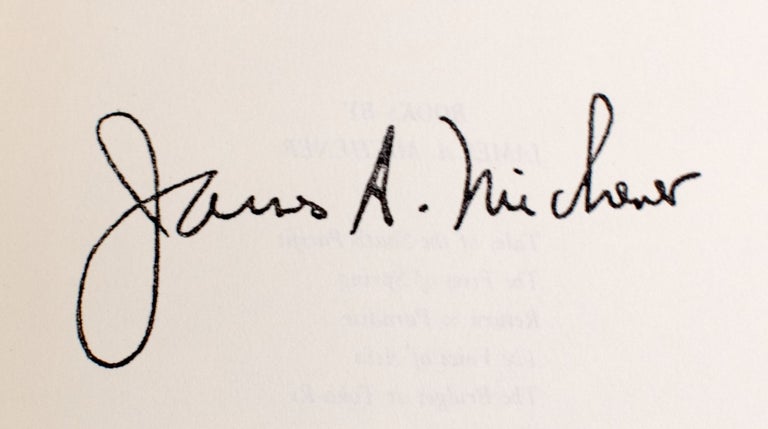 James A. Michener
BOOKS BY
JAMES A. MICHENER
Tales of the South Pacific
The Fires of Spring
Return to Paradise
The Voice of Asia
The Bridges at Toko-Ri